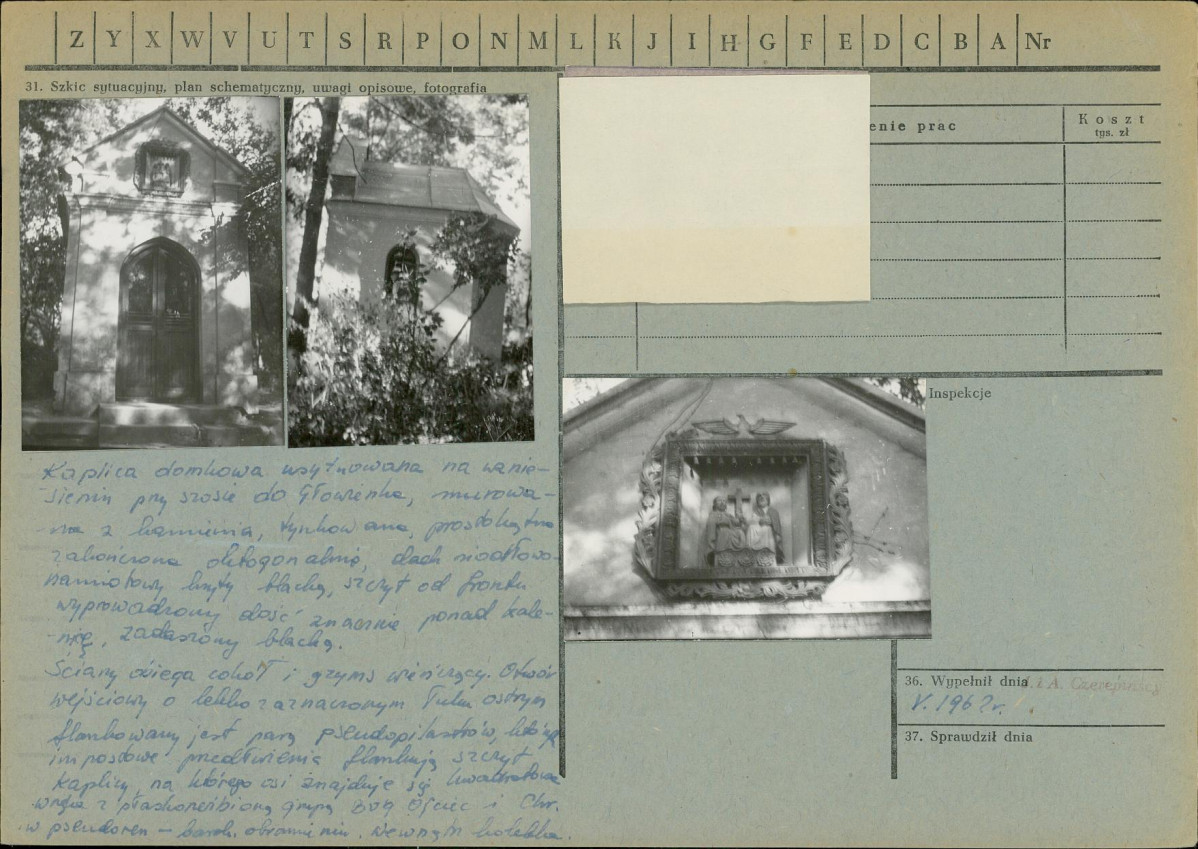 Z Y X W V U T S R P O N M L K J I H G F E D C B A Nr
31. Szkic sytuacyjny, plan schematyczny, uwagi opisowe, fotografia
enie prac
Koszt
tys. zł
Kaplica domkowa usytuowana na wznie-
sieniu przy szosie do Głowienka, murowa-
na z kamienia, tynkowana, prostokątna
zakończona oktogonalnie, dach siodłowo-
namiotowy kryty blachą, szczyt od frontu
wyprowadzony dość znacznie ponad kale-
nicę, zadaszony blachą.
Ściany obiega cokół i gzyms wieńczący. Otwór
wejściowy o lekko zaznaczonym łuku ostrym
flankowany jest parą pseudopilastrów, których
impostowe przedłużenia flankują szczyt
kaplicy, na którego osi znajduje się kwadratowa
wnęka z płaskorzeźbioną grupą Bóg Ojciec i Chr.
w pseudoren - barok. obramieniu. Wewnątrz kolebka.
Inspekcje
36. Wypełnił dnia i A. Czerepińscy
V. 1962r.
37. Sprawdził dnia